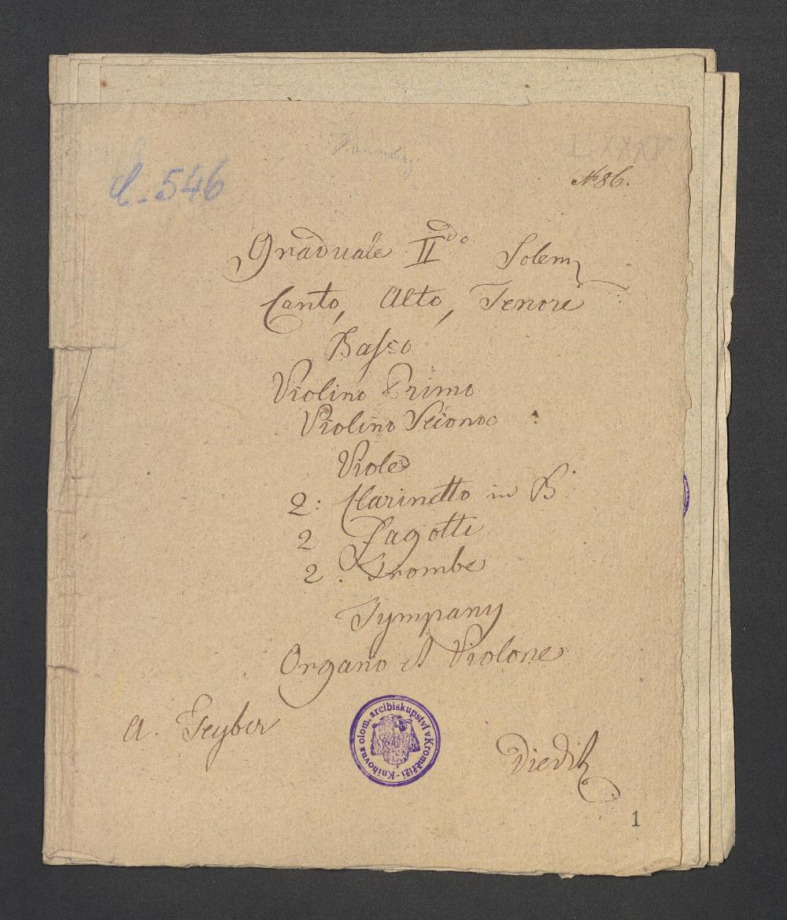 LXXXV
C. 546
No 86.
Graduale IIdo Solem
Canto, Alto, Tenore
Basso
Violino Primo
Violino Secondo
Viole
2: Clarinetto in B
2 Fagotti
2. Trombe
Tympany
Organo et Violone
A. Teyber
Knihovna olom. arcibiskupství v Kroměříži
1